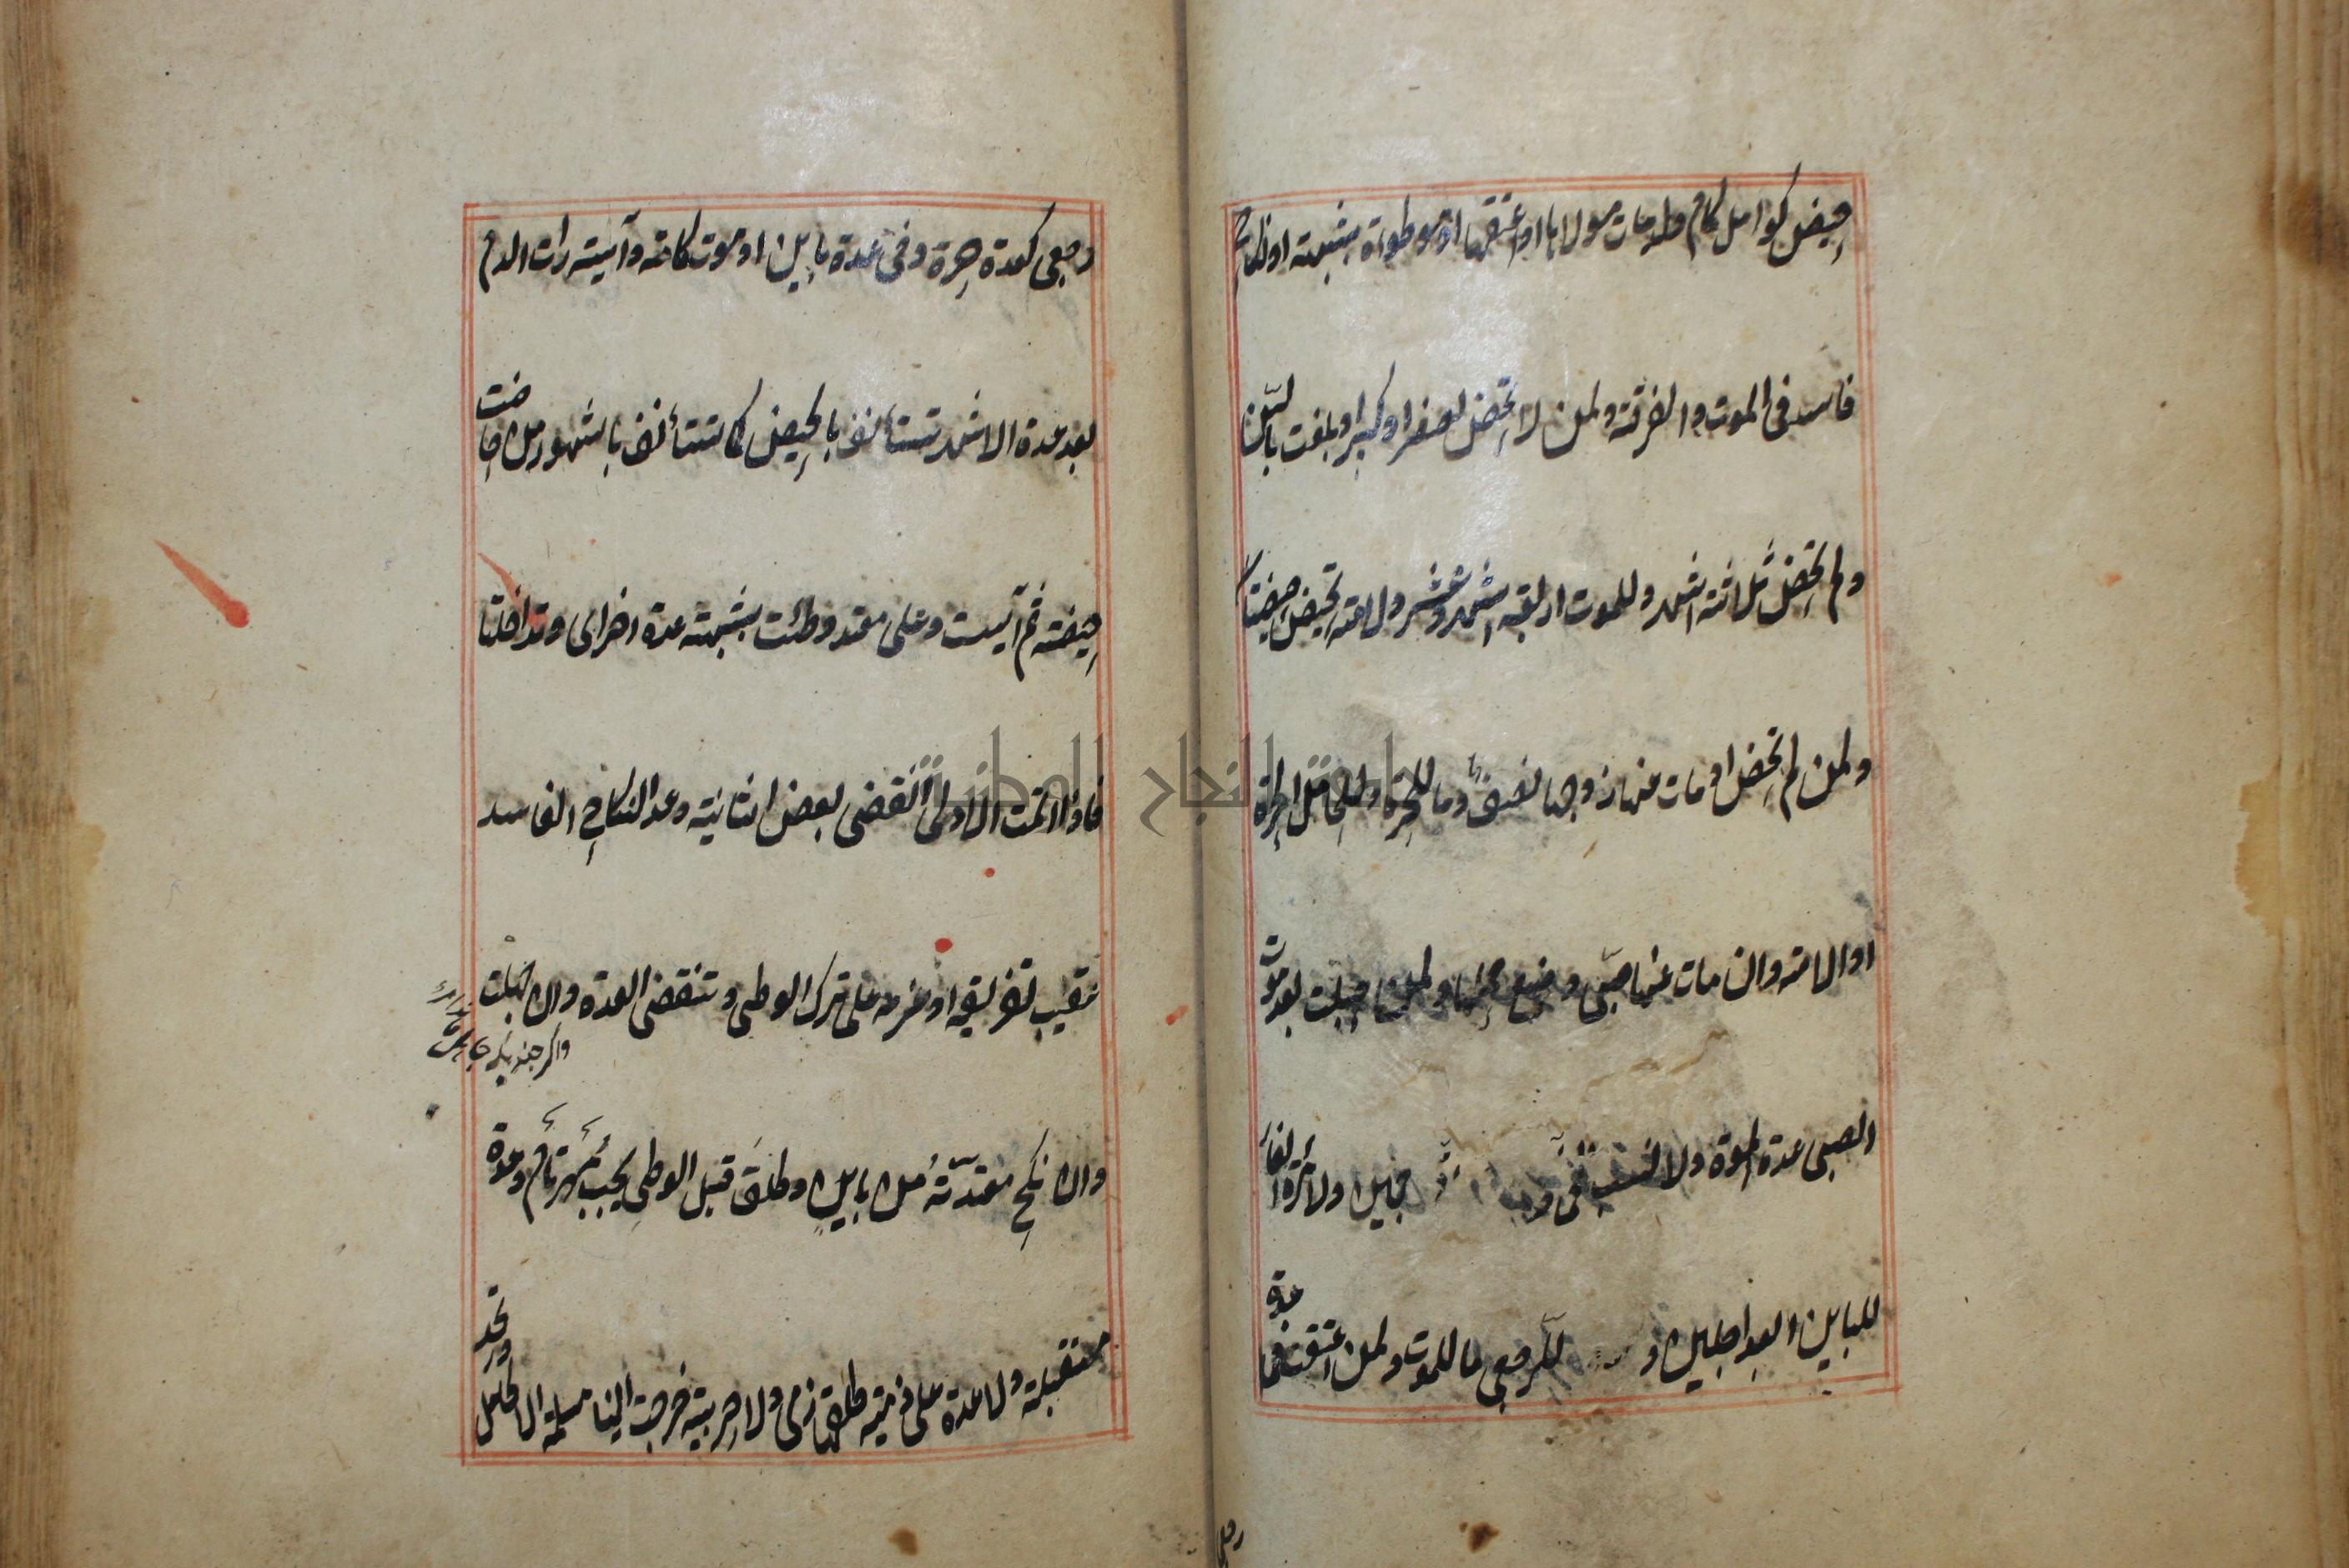 حيض كوامل كام ولد مات مولاها او اعتقها او موطوءة بشبهة او نكاح
فاسد فى الموت والفرقة ولمن لا تحيض لصغر او كبر او بلغت بالسن
ولم تحض ثلاثة اشهر وللموت اربعة اشهر وعشر ولامة تحيض حيضتا
ولمن لم تحض او مات عنها زوجها نصف ما للحرة وللحامل الحرة
او الامة وان مات عنها صبى وضع حملها ولمن حبلت بعد موت
الصبى عدة الموت ولا نسب فى وجهين ولامرأة الفار
للباين ابعد الاجلين و للرجعى ما للموت ولمن اعتقت فى عدة
رجعى كعدة حرة وفى عدة باين او موت كامة وآيسة رات الدم
بعد عدة الاشهر تستأنف بالحيض كما تستأنف بالشهور من حاضت
حيضة ثم آيست وعلى معتدة وطئت بشبهة عدة اخرى وتداخلتا
فاذا تمت الاولى انقضى بعض الثانية وعد النكاح الفاسد
عقيب تفريقه او عزمه على ترك الوطى وتنقضى العدة وان جهلت
وان نكح معتدته من باين وطلق قبل الوطى يجب مهر تام وعدة
مستقبلة ولا عدة على ذمية طلقها ذمى ولا حربية خرجت الينا مسلمة الا الحامل وتحد
جامعة النجاح الوطنية